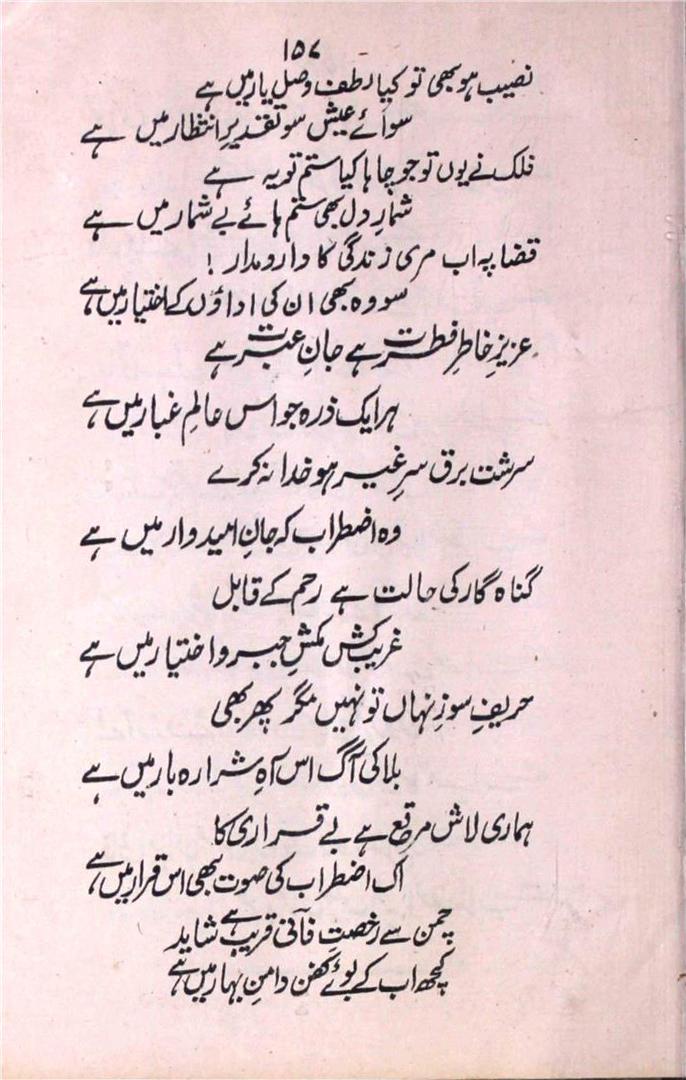 ۱۵۷
نصیب ہو بھی تو کیا لطف وصلِ یار میں ہے
سوائے عیش سو تقدیرِ انتظار میں ہے
فلک نے یوں تو جو چاہا کیا ستم تو یہ ہے
شمارِ دل بھی ستم ہائے بے شمار میں ہے
قضا پہ اب مری زندگی کا دارومدار !
سو وہ بھی ان کی اداؤں کے اختیار میں ہے
عزیزِ خاطرِ فطرت ہے جانِ عبرت ہے
ہر ایک ذرہ جو اس عالمِ غبار میں ہے
سرشت برق سرِ غیر ہو خدا نہ کرے
وہ اضطراب کہ جانِ امیدوار میں ہے
گناہ گار کی حالت ہے رحم کے قابل
غریب کش مکشِ جبر و اختیار میں ہے
حریفِ سوزِ نہاں تو نہیں مگر پھر بھی
بلا کی آگ اس آہِ شرارہ بار میں ہے
ہماری لاش مرقع ہے بے قراری کا
اک اضطراب کی صوت بھی اس قرار میں ہے
چمن سے رخصتِ فانی قریب ہے شاید
کچھ اب کے بوئے کفن دامنِ بہار میں ہے